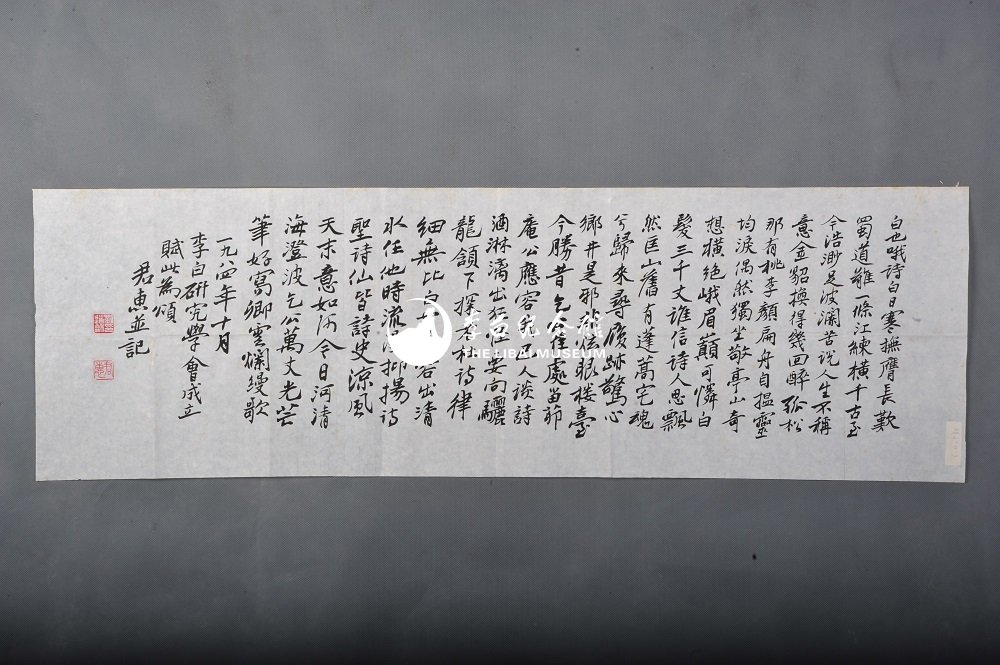 白也哦诗白日寒撫膺長歎
蜀道難一條江練橫千古至
今浩渺足波瀾苦说人生不稱
意金貂換得幾回醉孤松
那有桃李顏扁舟自搵靈
均淚偶然獨坐敬亭山奇
想橫绝峨眉巔可憐白
髮三千丈谁信詩人思飘
然匡山舊有蓬蒿宅魂
兮歸來尋屐跡驚心
鄉井是邪非炫眼楼臺
今勝昔乞公住處當節
庵公應容我人谈詩
酒淋漓出狂性安向驪
龍頷下探詩律
細無比白君出清
水任他時流浮抑揚诗
聖詩仙皆詩史涼風
天末意如何今日河清
海澄波乞公萬丈光芒
筆好寫卿雲爛缦歌
一九八四年十月
李白研究學會成立
賦此為頌
君惠並記
李白纪念館
THE LIBAI MUSEUM